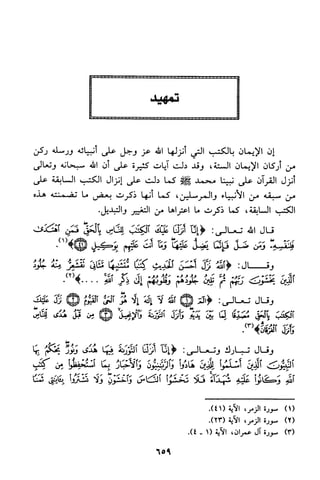 تمهيد
إن الإيمان بالكتب التي أنزلها الله عز وجل على أنبيائه ورسله ركن
من أركان الإيمان الستة، وقد دلت آيات كثيرة على أن الله سبحانه وتعالى
أنزل القرآن على نبينا محمد ﷺ كما دلت على إنزال الكتب السابقة على
من سبقه من الأنبياء والمرسلين، كما أنها ذكرت بعض ما تضمنته هذه
الكتب السابقة، كما ذكرت ما اعتراها من التغيير والتبديل.
قال الله تعالى: ﴿إِنَّا أَنزَلْنَا عَلَيْكَ الْكِتَابَ لِلنَّاسِ بِالْحَقِّ فَمَنِ اهْتَدَى
فَلِنَفْسِهِ وَمَن ضَلَّ فَإِنَّمَا يَضِلُّ عَلَيْهَا وَمَا أَنتَ عَلَيْهِم بِوَكِيلٍ﴾(١).
وقال: ﴿اللَّهُ نَزَّلَ أَحْسَنَ الْحَدِيثِ كِتَابًا مُّتَشَابِهًا مَّثَانِيَ تَقْشَعِرُّ مِنْهُ جُلُودُ
الَّذِينَ يَخْشَوْنَ رَبَّهُمْ ثُمَّ تَلِينُ جُلُودُهُمْ وَقُلُوبُهُمْ إِلَى ذِكْرِ اللَّهِ ....﴾(٢).
وقال تعالى: ﴿الم ١ اللَّهُ لَا إِلَهَ إِلَّا هُوَ الْحَيُّ الْقَيُّومُ ٢ نَزَّلَ عَلَيْكَ
الْكِتَابَ بِالْحَقِّ مُصَدِّقًا لِّمَا بَيْنَ يَدَيْهِ وَأَنزَلَ التَّوْرَاةَ وَالْإِنجِيلَ ٣ مِن قَبْلُ هُدًى لِّلنَّاسِ
وَأَنزَلَ الْفُرْقَانَ﴾(٣).
وقال تبارك وتعالى: ﴿إِنَّا أَنزَلْنَا التَّوْرَاةَ فِيهَا هُدًى وَنُورٌ يَحْكُمُ بِهَا
النَّبِيُّونَ الَّذِينَ أَسْلَمُوا لِلَّذِينَ هَادُوا وَالرَّبَّانِيُّونَ وَالْأَحْبَارُ بِمَا اسْتُحْفِظُوا مِن كِتَابِ
اللَّهِ وَكَانُوا عَلَيْهِ شُهَدَاءَ فَلَا تَخْشَوُا النَّاسَ وَاخْشَوْنِ وَلَا تَشْتَرُوا بِآيَاتِي ثَمَنًا
(١) سورة الزمر، الآية (٤١).
(٢) سورة الزمر، الآية (٢٣).
(٣) سورة آل عمران، الآية (١ - ٤).
٦٥٩